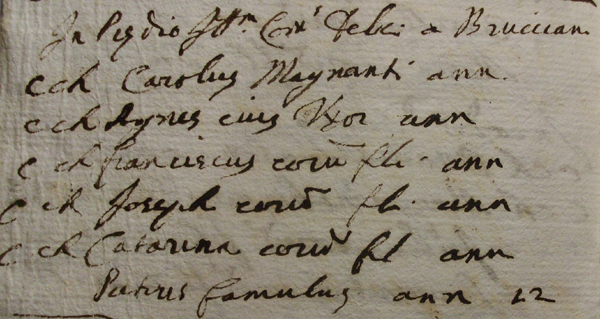 In Pr͠dio Jll͠m Com͠s Felici a Bruccian.
c ch Carolus Magnanti ann.
c ch Agnes eius Uxor ann
c ch franciscus eoru͠ fli. ann
c ch Joseph eoru͠ fli. ann
c ch Catarina eoru͠ fl ann
Petrus famulus ann 22